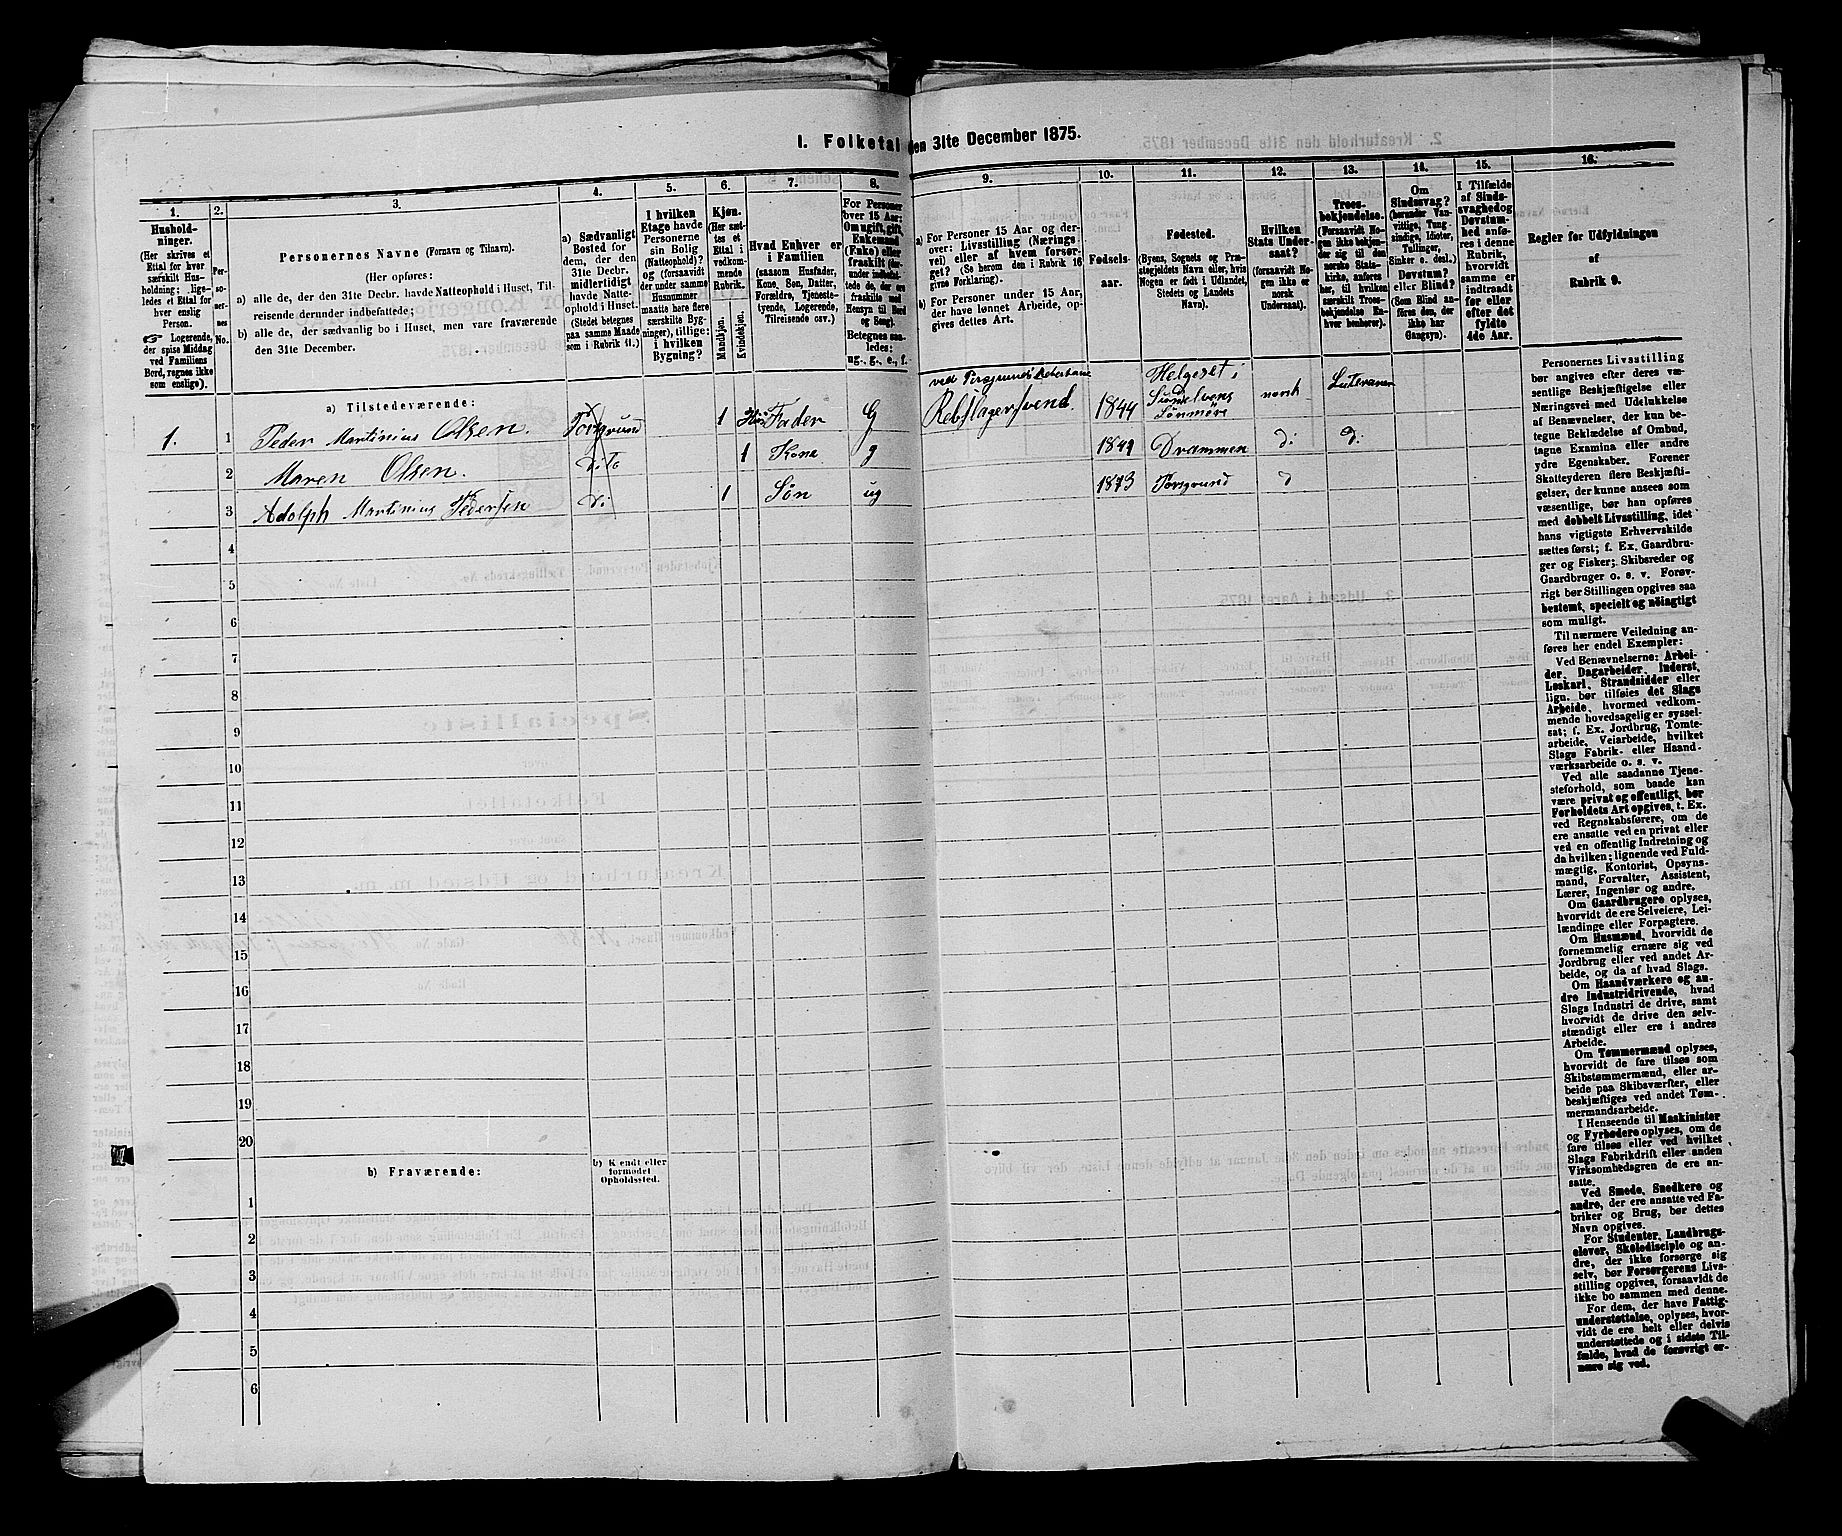 I. Folketal den 31te December 1875.
1. 2. 3. 4. 5. 6. 7. 8. 9. 10. 11. 12. 13. 14. 15. 16.
Hushold-
ninger.
(Her skrives et
Ettal for hver
særskilt Hus-
holdning; lige-
ledes et Ettal for
hver enslig
Person.
☞ Logerende,
der spise Middag
ved Familiens
Bord, regnes ikke
som enslige).
Per-
so-
ner-
nes
No.
Personernes Navne (Fornavn og Tilnavn).
(Her opføres:
a) alle de, der den 31te Decbr. havde Natteophold i Huset, Til-
reisende derunder indbefattede;
b) alle de, der sædvanlig bo i Huset, men vare fraværende
den 31te December.
a) Sædvanligt
Bosted for
dem, der den
31te Decbr.
midlertidigt
havde Natte-
ophold i Huset.
(Stedet betegnes
paa samme Maade
som i Rubrik 11.)
I hvilken
Etage havde
Personerne
sin Bolig
(Natteophold)?
og (forsaavidt
der under samme
Husnummer
maatte høre flere
særskilte Byg-
ninger), tillige:
i hvilken
Bygning?
Kjøn.
(Her sæt-
tes et
Ettal i
vedkom-
mende
Rubrik.
Mandkjøn.
Kvindekjøn.
Hvad Enhver er
i Familien
(saasom Husfader,
Kone, Søn, Datter,
Forældre, Tjeneste-
tyende, Logerende,
Tilreisende osv.)
For Personer
over 15 Aar;
Om ugift, gift,
Enkemand
(Enke) eller
fraskilt
Betegnes saa-
ledes:
ug., g., e., f.
a) For Personer 15 Aar og der-
over: Livsstilling (Nærings-
vei) eller af hvem forsør-
get? (Se herom den i Rubrik 16
givne Forklaring).
b) For Personer under 15 Aar,
der have lønnet Arbeide, op-
gives dettes Art.
Fødsels-
aar.
Fødested.
(Byens, Sognets og Præ-
stegjeldets Navn eller, hvis
Nogen er født i Udlandet,
Stedets og Landets
Navn).
Hvilken
Stats Under-
saat?
(forsaavidt No-
gen ikke er
norsk
Undersaat).
Troes-
bekjendelse.
(Forsaavidt No-
gen ikke bekjen-
der sig til den
norske Stats-
kirke, anføres
her, til hvilken
særskilt Troes-
bekjendelse En-
hver henhører).
Om
Sindssvag?
(herunder Van-
vittige, Tung-
sindige, Idioter,
Tullinger,
Sinker o. desl.)
Døvstum?
eller Blind?
(Som Blind an-
føres den, der
ikke har
Gangsyn).
I Tilfælde
af Sinds-
svaghed og
Døvstum-
hed anfø-
res i denne
Rubrik,
hvorvidt
samme er
indtraadt
før eller
efter det
fyldte
4de Aar.
Regler for Udfyldningen
af
Rubrik 9.
a) Tilstedeværende:
1. 1 Peder Martinius Olsen. Porsgrund 1 Hus Fader G ved Porsgrunds Reberbane Rebslagersvend. 1844 Helgeset i Søndmøre norsk Luteraner
2 Maren Olsen. Dito 1 Kone g 1849 Drammen D: D:
3 Adolph Martinius Pedersen Di 1 Søn ug 1873 Porsgrund D
4
5
6
7
8
9
10
11
12
13
14
15
16
17
18
19
20
b) Fraværende:
b) Kendt eller
formodet
Opholdssted.
1
2
3
4
5
6
Personernes Livsstilling
bør angives efter deres væ-
sentlige Beskjæftigelse eller
Næringsvei med Udelukkelse
af Benævnelser, der kun be-
tegne Beklædelse af Ombud,
tagne Examina eller andre
ydre Egenskaber. Forener
Skatteyderen flere Beskjæfti-
gelser, der kunne ansees som
væsentlige, bør han opføres
med dobbelt Livsstilling, idet
hans vigtigste Erhvervskilde
sættes først; f. Ex. Gaardbru-
ger og Fisker; Skibsreder og
Gaardbruger o. s. v. Forøv-
rigt bør Stillingen opgives saa
bestemt, specielt og nöiagtigt
som muligt.
Til nærmere Veiledning an-
føres her endel Exempler:
Ved Benævnelserne: Arbei-
der, Dagarbeider, Inderst,
Løskarl, Strandsidder eller
lign. bør tilføies det Slags
Arbeide, hvormed vedkom-
mende hovedsagelig er syssel-
sat; f. Ex. Jordbrug, Tomte-
arbeide, Veiarbeide, hvilket
Slags Fabrik- eller Haand-
værksarbeide o. s. v.
Ved alle saadanne Tjene-
steforhold, som baade kan
være privat og offentligt, bør
Forholdets Art opgives, t. Ex.
ved Regnskabsførere, om de
ere ansatte ved en privat eller
ved en offentlig Indretning og
da hvilken; lignende ved Fuld-
mægtig, Kontorist, Opsyns-
mand, Forvalter, Assistent,
Lærer, Ingeniør og andre.
Om Gaardbrugere oplyses,
hvorvidt de ere Selveiere, Lei-
lændinge eller Forpagtere.
Om Husmænd, hvorvidt de
fornemmelig ernære sig ved
Jordbrug eller ved andet Ar-
beide, og da af hvad Slags.
Om Haandværkere og an-
dre Industridrivende, hvad
Slags Industri de drive, samt
hvorvidt de drive den selv-
stændigt eller ere i andres
Arbeide.
Om Tømmermænd oplyses,
hvorvidt de fare tilsøs som
Skibstømmermænd, eller ar-
beide paa Skibsværfter, eller
beskjæftiges ved andet Tøm-
mermandsarbeide.
I Henseende til Maskinister
og Fyrbødere oplyses, om de
fare tilsøs eller ved hvilket
Slags Fabrikdrift eller anden
Virksomhedsgren de ere an-
satte.
Ved Smede, Snedkere og
andre, der ere ansatte ved Fa-
briker og Brug, bør dettes
Navn opgives.
For Studenter, Landbrugs-
elever, Skoledisciple og an-
dre, der ikke forsørge sig
selv, bør Forsørgerens Livs-
stilling opgives, forsaavidt de
ikke bo sammen med denne.
For dem, der have Fattig-
understøttelse, oplyses, hvor-
vidt de ere helt eller delvis
understøttede og i sidste Til-
fælde, hvad de forøvrigt er-
nære sig ved.